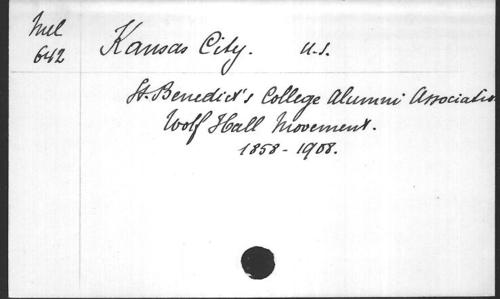 Mel
642
Kansas City. U.S.
St. Benedict's College Alumni Associatio
Wolf Hall Movement.
1858-1908.